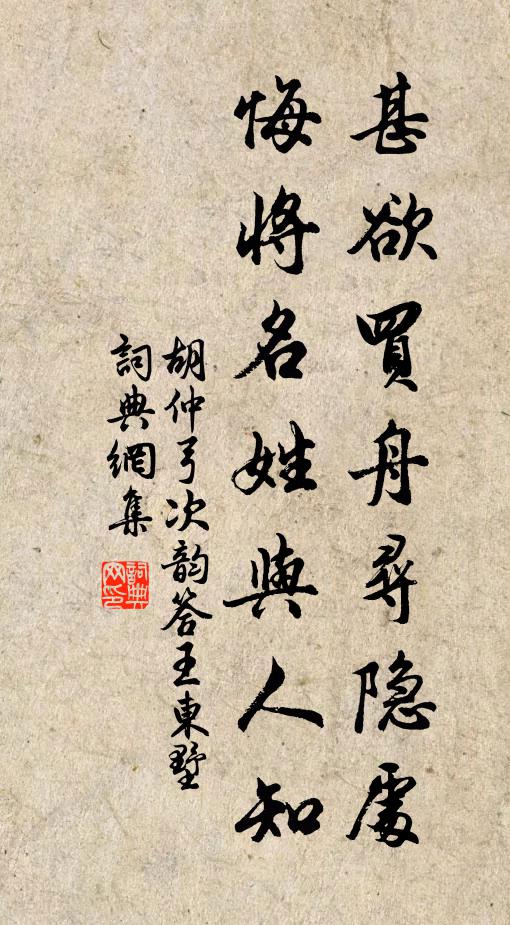 甚欲買舟尋隐處
悔将名姓與人知
胡仲弓次韵答王東墅
詞典網集
詞典网印